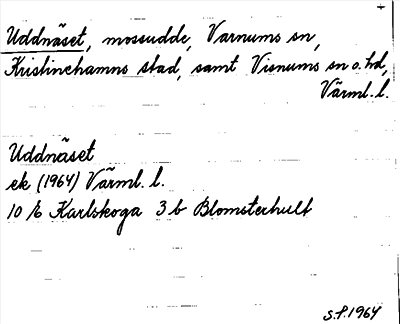 Uddnäset, mossudde, Varnums sn,
Kristinehamns stad, samt Visnums sn o. hd,
Värml. l.
Uddnäset
ek (1964) Värml. l.
10 E Karlskoga 3 b Blomsterhult
S.P. 1964